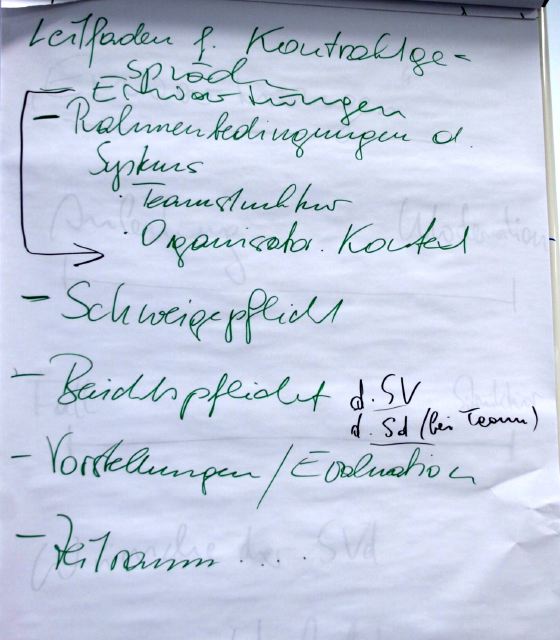 Leitfaden f. Kontraktge=
spräch
- Erwartungen
- Rahmenbedingungen d.
Systems
· Teamstruktur
· Organisator. Kontext
- Schweigepflicht
- Berichtspflicht d. SV
d. Sd (bei Team)
- Vorstellungen / Evaluation
- Zeitraum ....